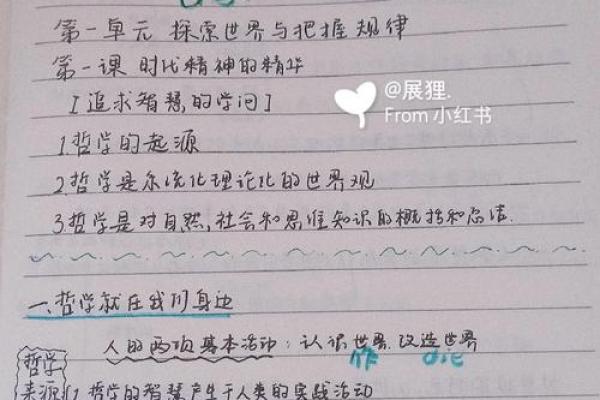 第一单元 探索世界与把握规律
第一课 时代精神的精华
[追求智慧的学问]
@展狸.
From 小红书
1.哲学的起源
2.哲学是系统化理论化的世界观
3.哲学是对自然,社会和思维知识的概括和总结.
一、哲学就在我们身边
人的两项基本活动:认识世界.改造世界
作 die
哲学
来源 1.哲学的智慧产生于人类的实践活动